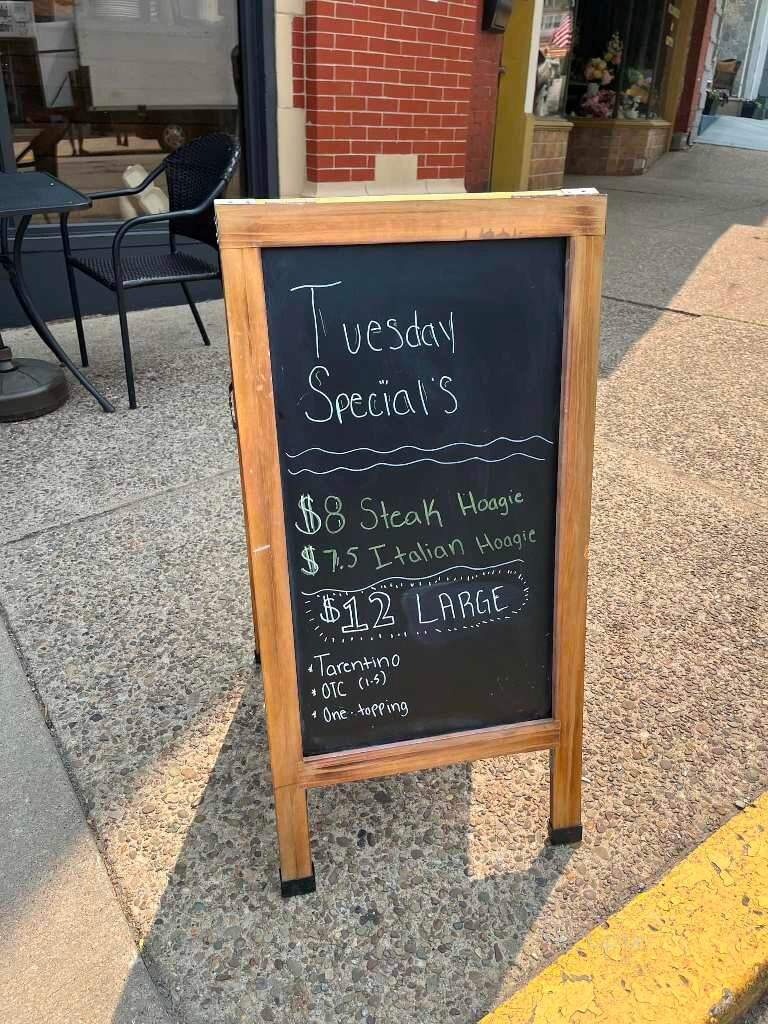 Tuesday
Special's
$8 Steak Hoagie
$7.5 Italian Hoagie
$12 LARGE
* Tarentino
* OTC (1-5)
* One-topping